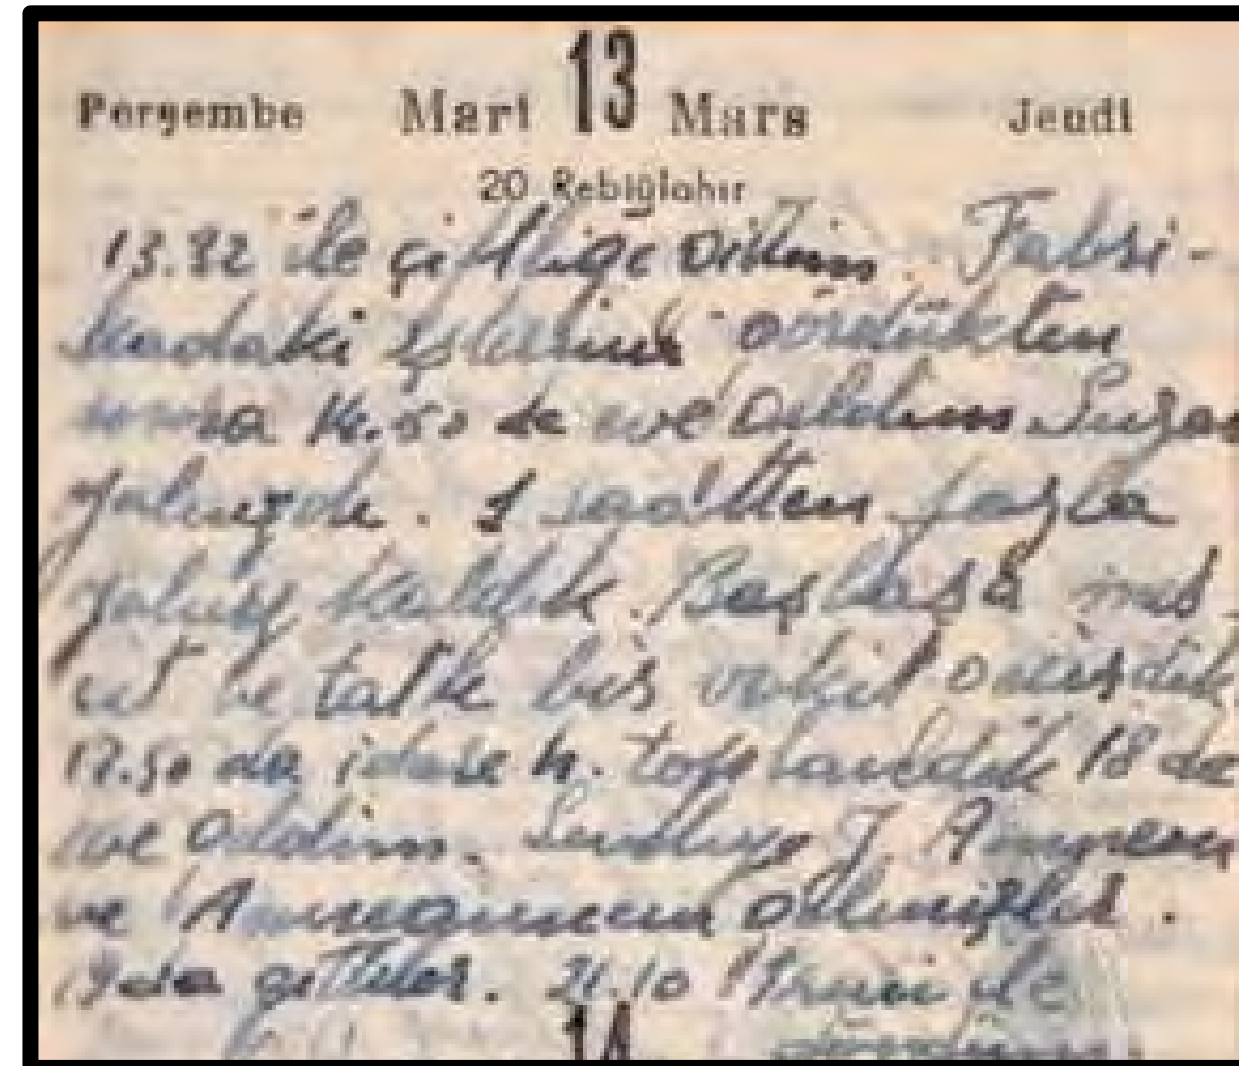 Perşembe Mart 13 Mars Jeudi
20 Rebiülahır
13.32 ile çiftliğe gittim. Fabri-
kadaki işlerimi gördükten
sonra 14.50 de eve geldim Suzan
yalnızdı. 1 saatten fazla
yalnız kaldık. Başbaşa
ve tatlı bir vakit geçirdik.
17.50 da idare h. toplandık 18 de
eve geldim. Annem
ve gelmişler.
19 da gittiler. 21.10 ile
14